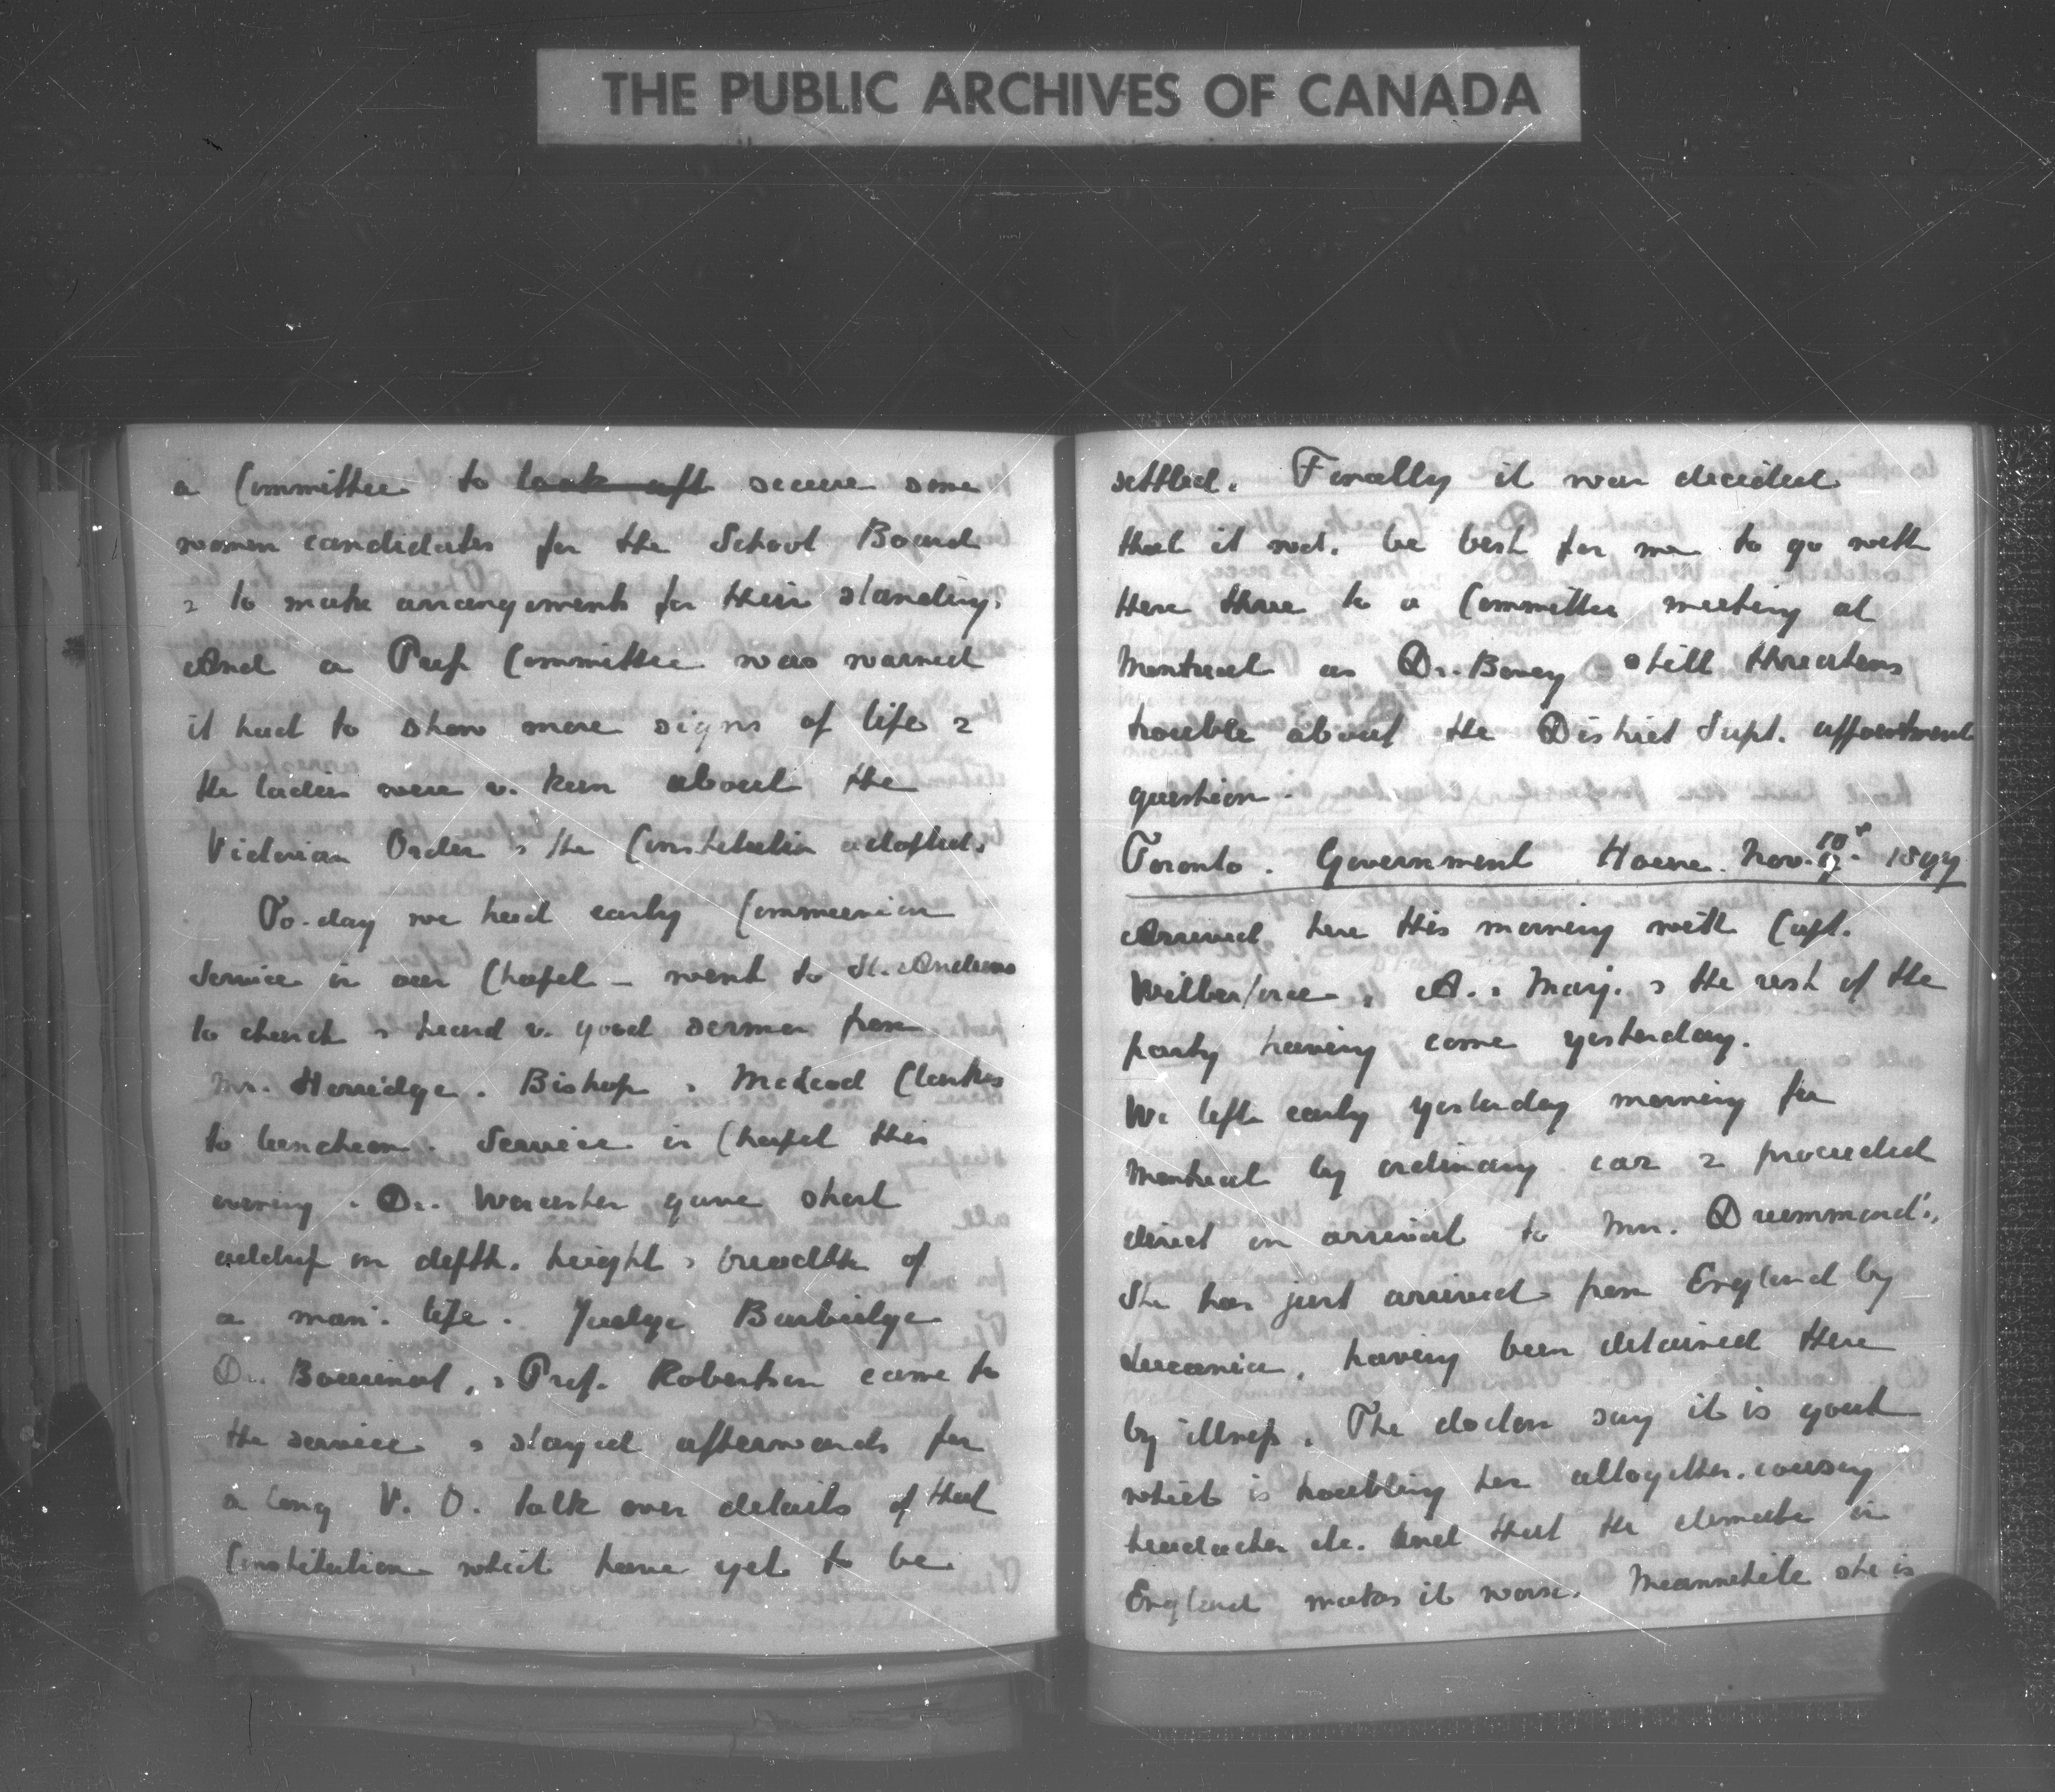 THE PUBLIC ARCHIVES OF CANADA
a Committee to look aft secure some
women candidates for the School Board
& to make arrangements for their standing.
And a Press Committee was warned
it had to show more signs of life &
the ladies were v. keen about the
Victorian Order & the Constitution adopted.
To-day we had early Communion
Service in our Chapel – went to St. Andrews
to church & heard v. good sermon from
Mr. Herridge. Bishop & McLeod Clarkes
to luncheon. Service in Chapel this
evening. Dr. Worcester gave short
address on depth, height & breadth of
a man's life. Judge Burbidge
Dr. Bourinot, & Prof. Robertson came to
the service & stayed afterwards for
a long V. O. talk over details of that
Constitution which have yet to be
settled. Finally it was decided
that it wd. be best for me to go with
these three to a Committee meeting at
Montreal as Dr. Bovey still threatens
trouble about the District Supt. appointment
question.
Toronto. Government House. Nov. 10th 1897
Arrived here this morning with Capt.
Wilberforce, A. & Marj. & the rest of the
party having come yesterday.
We left early yesterday morning for
Montreal by ordinary car & proceeded
direct on arrival to Mrs. Drummond's.
She has just arrived from England by
Lucania, having been detained there
by illness. The doctors say it is gout
which is troubling her altogether, causing
headaches etc. and that the climate in
England makes it worse. Meanwhile she is